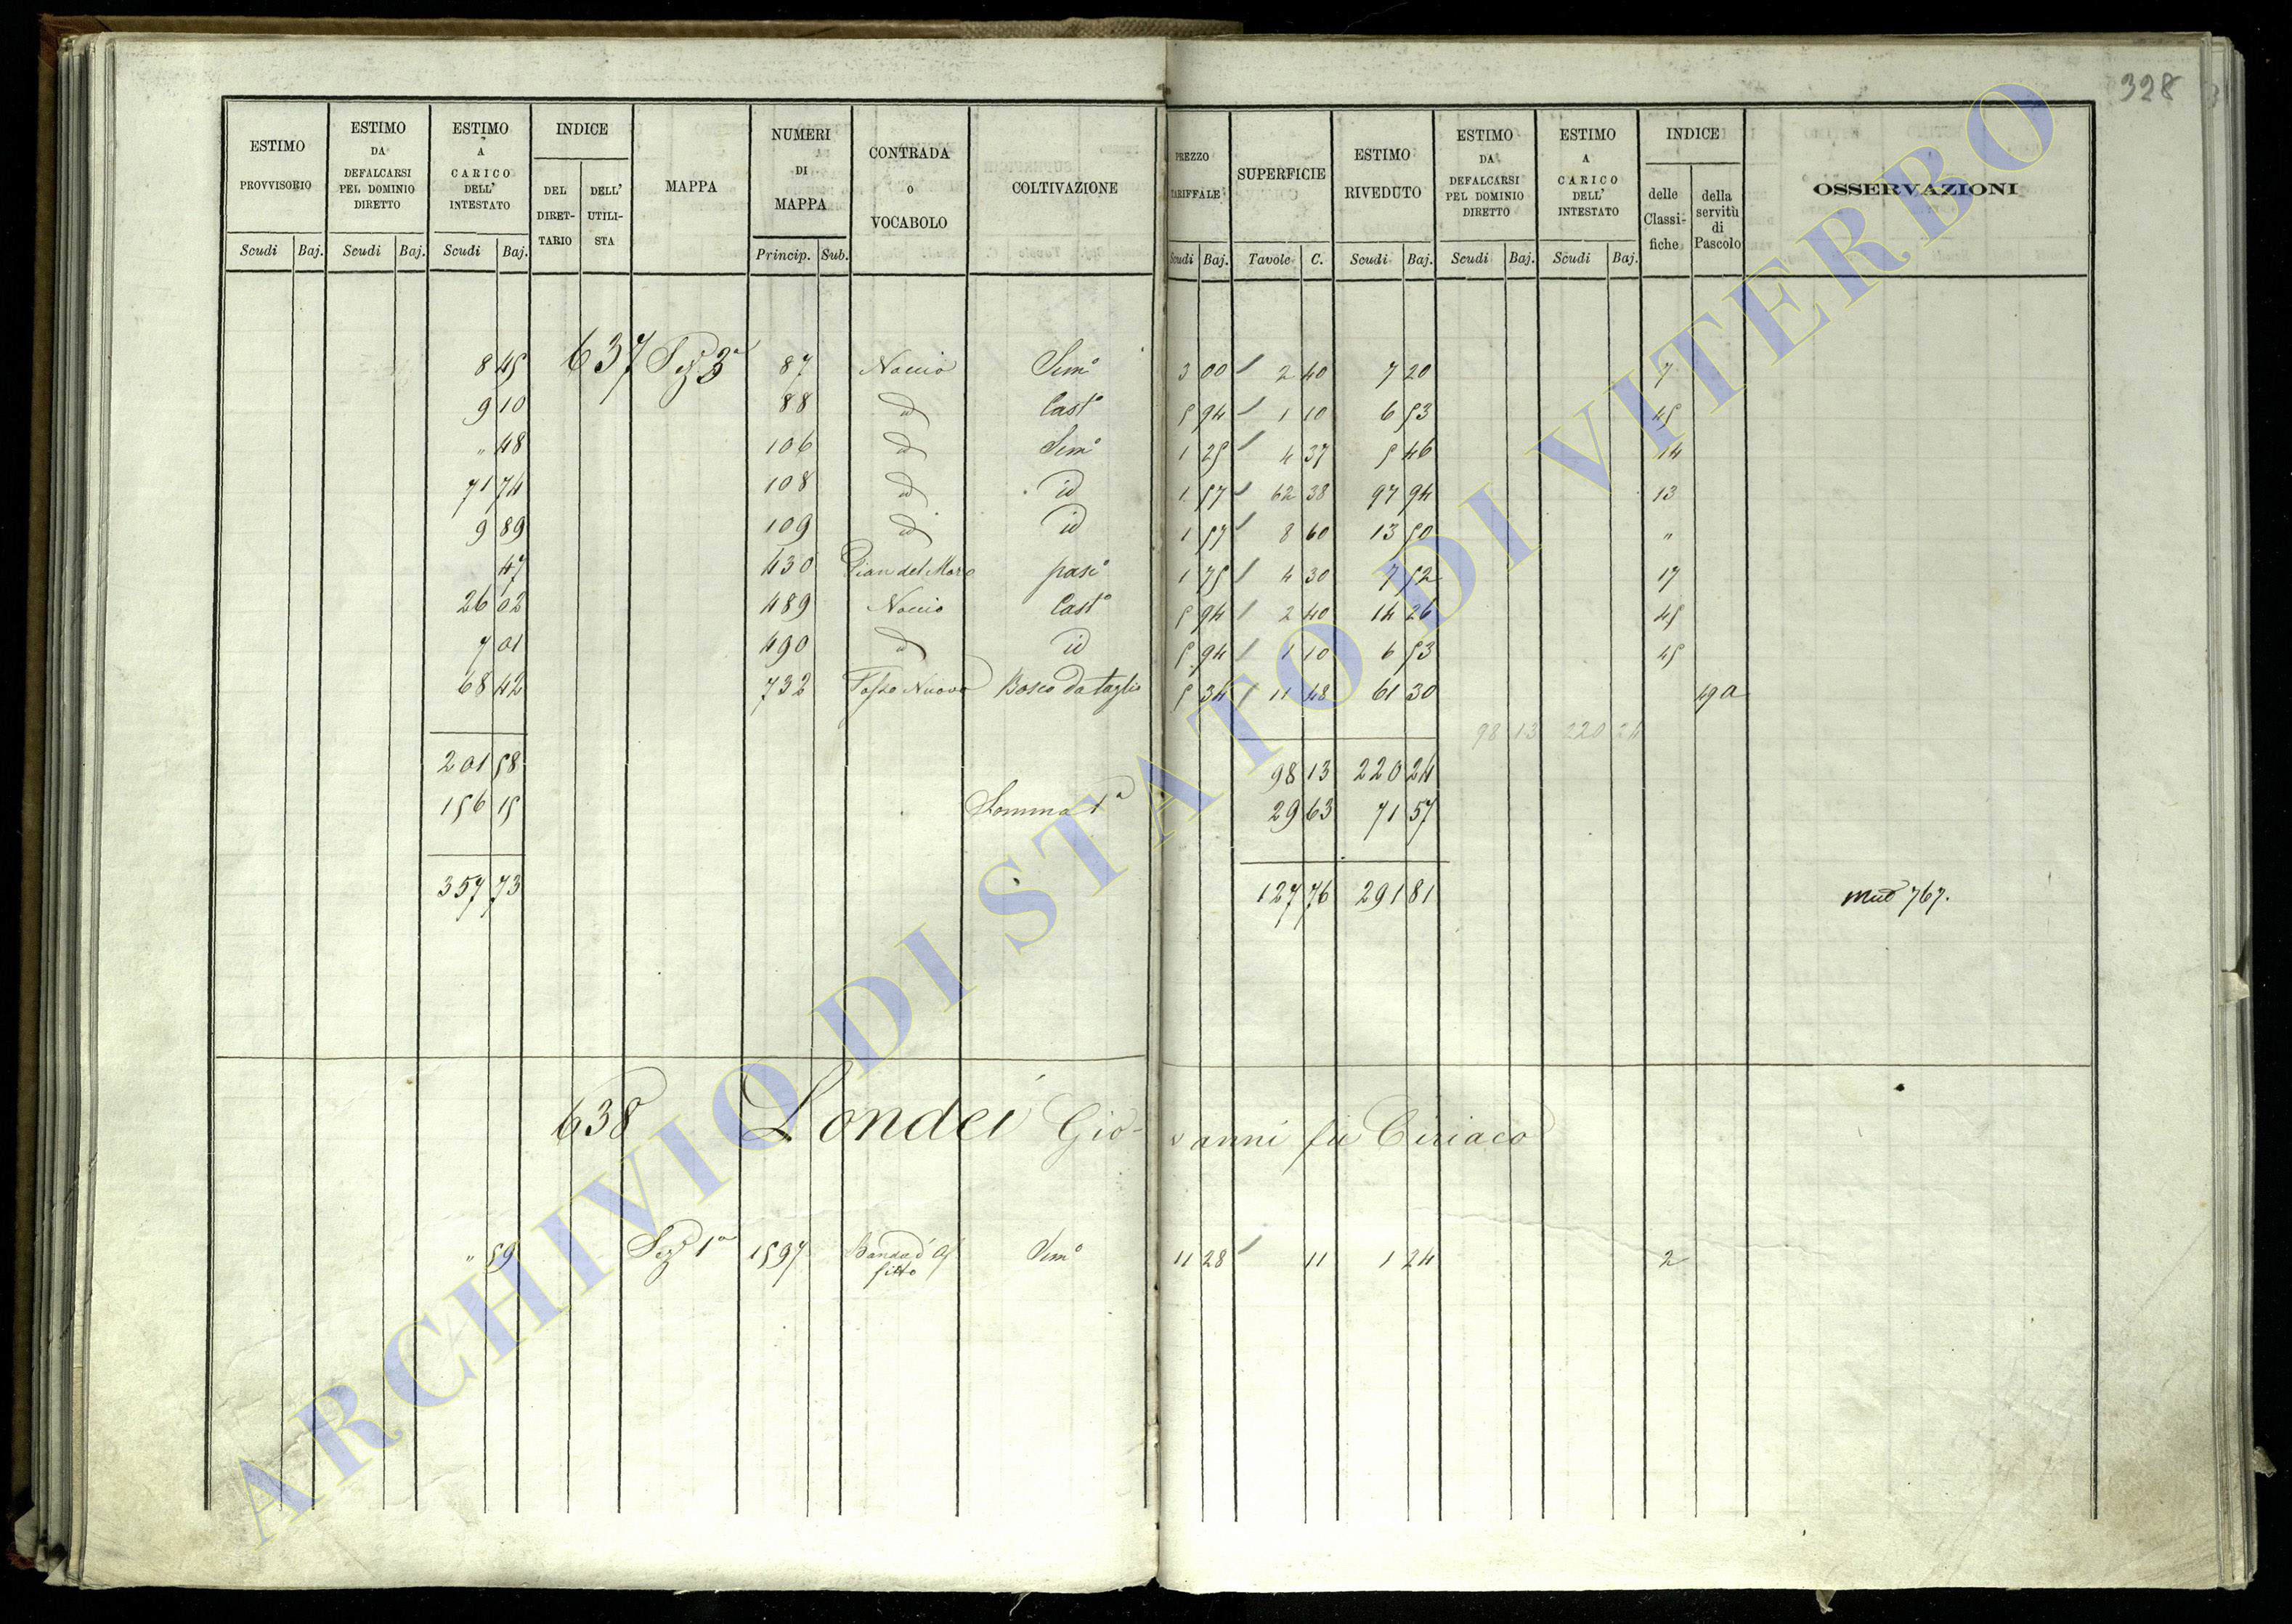 328
ESTIMO PROVVISORIO Scudi Baj.
ESTIMO DA DEFALCARSI PEL DOMINIO DIRETTO Scudi Baj.
ESTIMO A CARICO DELL' INTESTATO Scudi Baj.
INDICE DEL DIRETTARIO DELL' UTILISTA
MAPPA
NUMERI DI MAPPA Princip. Sub.
CONTRADA O VOCABOLO
COLTIVAZIONE
PREZZO TARIFFALE Scudi Baj.
SUPERFICIE Tavole C.
ESTIMO RIVEDUTO Scudi Baj.
ESTIMO DA DEFALCARSI PEL DOMINIO DIRETTO Scudi Baj.
ESTIMO A CARICO DELL' INTESTATO Scudi Baj.
INDICE delle Classifiche della servitù di Pascolo
OSSERVAZIONI
8 45 637 Sez 3ª 87 Noccio Semº 3 00 2 40 7 20 7
9 10 88 id Castº 5 94 1 10 6 53 45
" 48 106 id Semº 1 25 4 37 5 46 14
71 74 108 id id 1 57 62 38 97 94 13
9 89 109 id id 1 57 8 60 13 50 "
47 430 Pian del Moro pascº 1 75 4 30 7 52 17
26 02 489 Noccio Castº 5 94 2 40 14 26 45
7 01 490 id id 5 94 1 10 6 53 45
68 42 732 Fosso Nuovo Bosco da taglio 5 34 11 48 61 30 49 a
98 13 220 24
201 58 98 13 220 24
156 15 Somma 1ª 29 63 71 57
357 73 127 76 291 81 Mut 767.
638 Londei Giovanni fu Ciriaco
" 59 Sez 1ª 1597 Banda d' Affitto Semº 11 28 11 1 24 2
ARCHIVIO DI STATO DI VITERBO